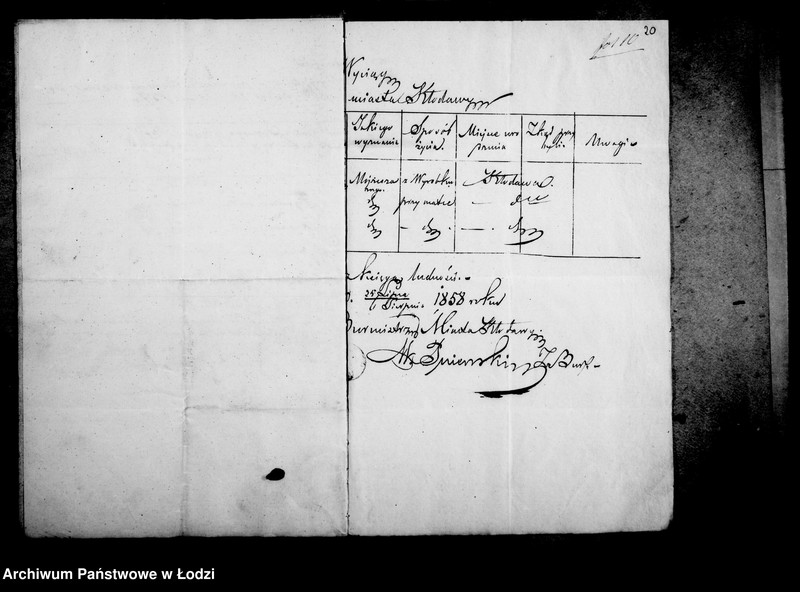 20
fol 10
Wyciąg
miasta Kłodawy
Jakiego wyznania Sposób życia. Miejsce uro dzenia Zkąd przy byli Uwagi
Mojżeszo wego z Wyrobku Kłodawa.
dy przy matce — dto
dy — dy. —. dy
Księgi ludności.
25 Lipca
6 Sierpnia 1858 roku
Burmistrz Miasta Kłodawy
Archiwum Państwowe w Łodzi